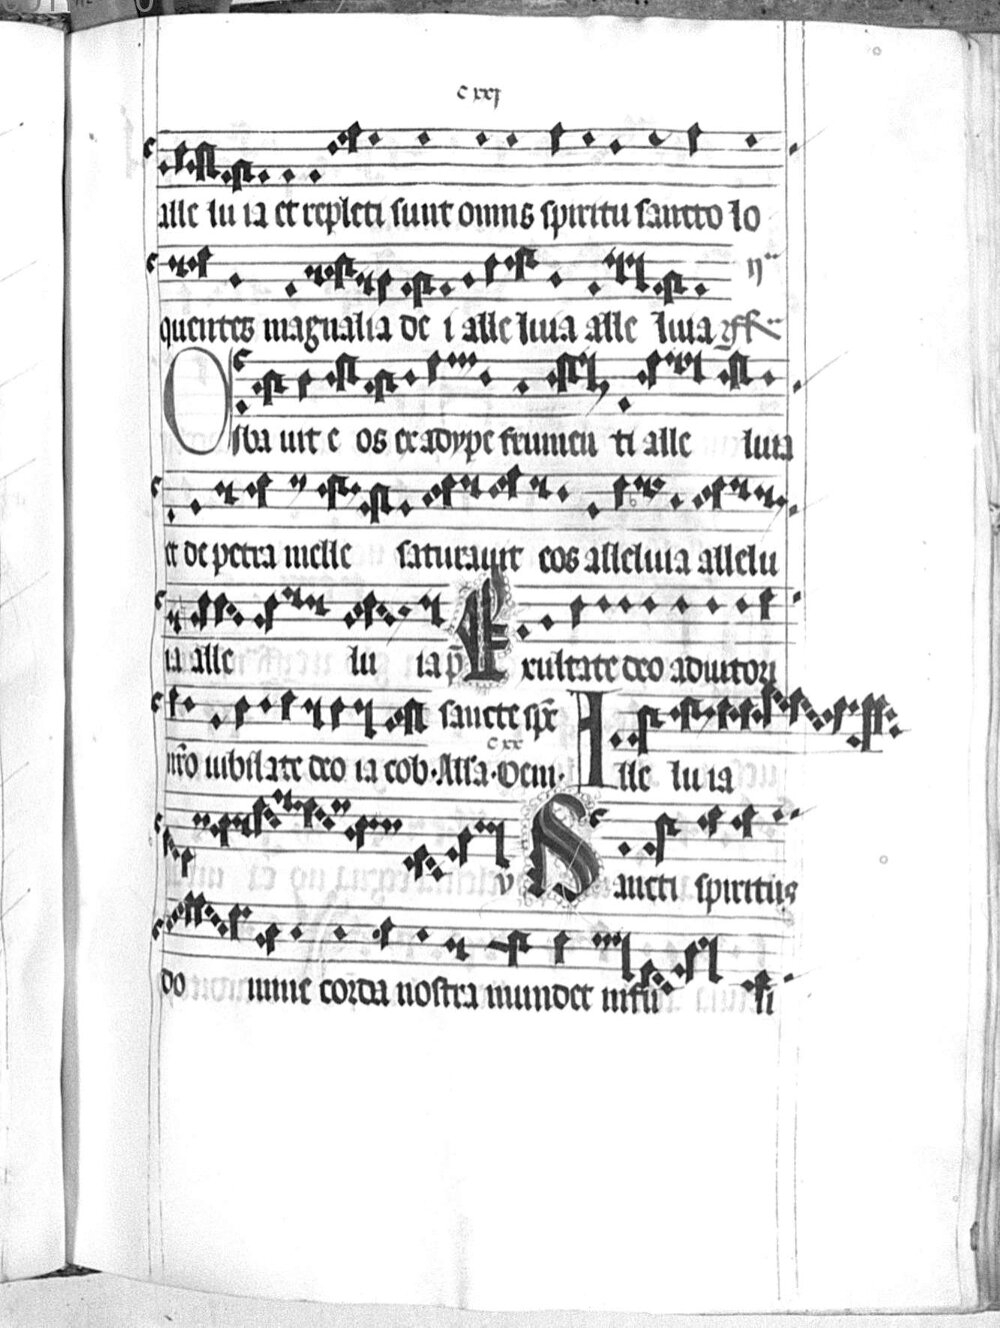 c xxj
alle lu ia et repleti sunt omnis spiritu sancto lo
quentes magnalia de i alle luia alle luia
Ciba uit e os ex adype frumen ti alle luia
et de petra melle saturauit eos alleluia allelu
ia alle lu ia p̄s Exultate deo adiutori
sancte sp̄c
c xx
nr̄o iubilate deo ia cob. Alla. Oem. Alle lu ia
v Sancti spiritus
do mine corda nostra mundet infu si